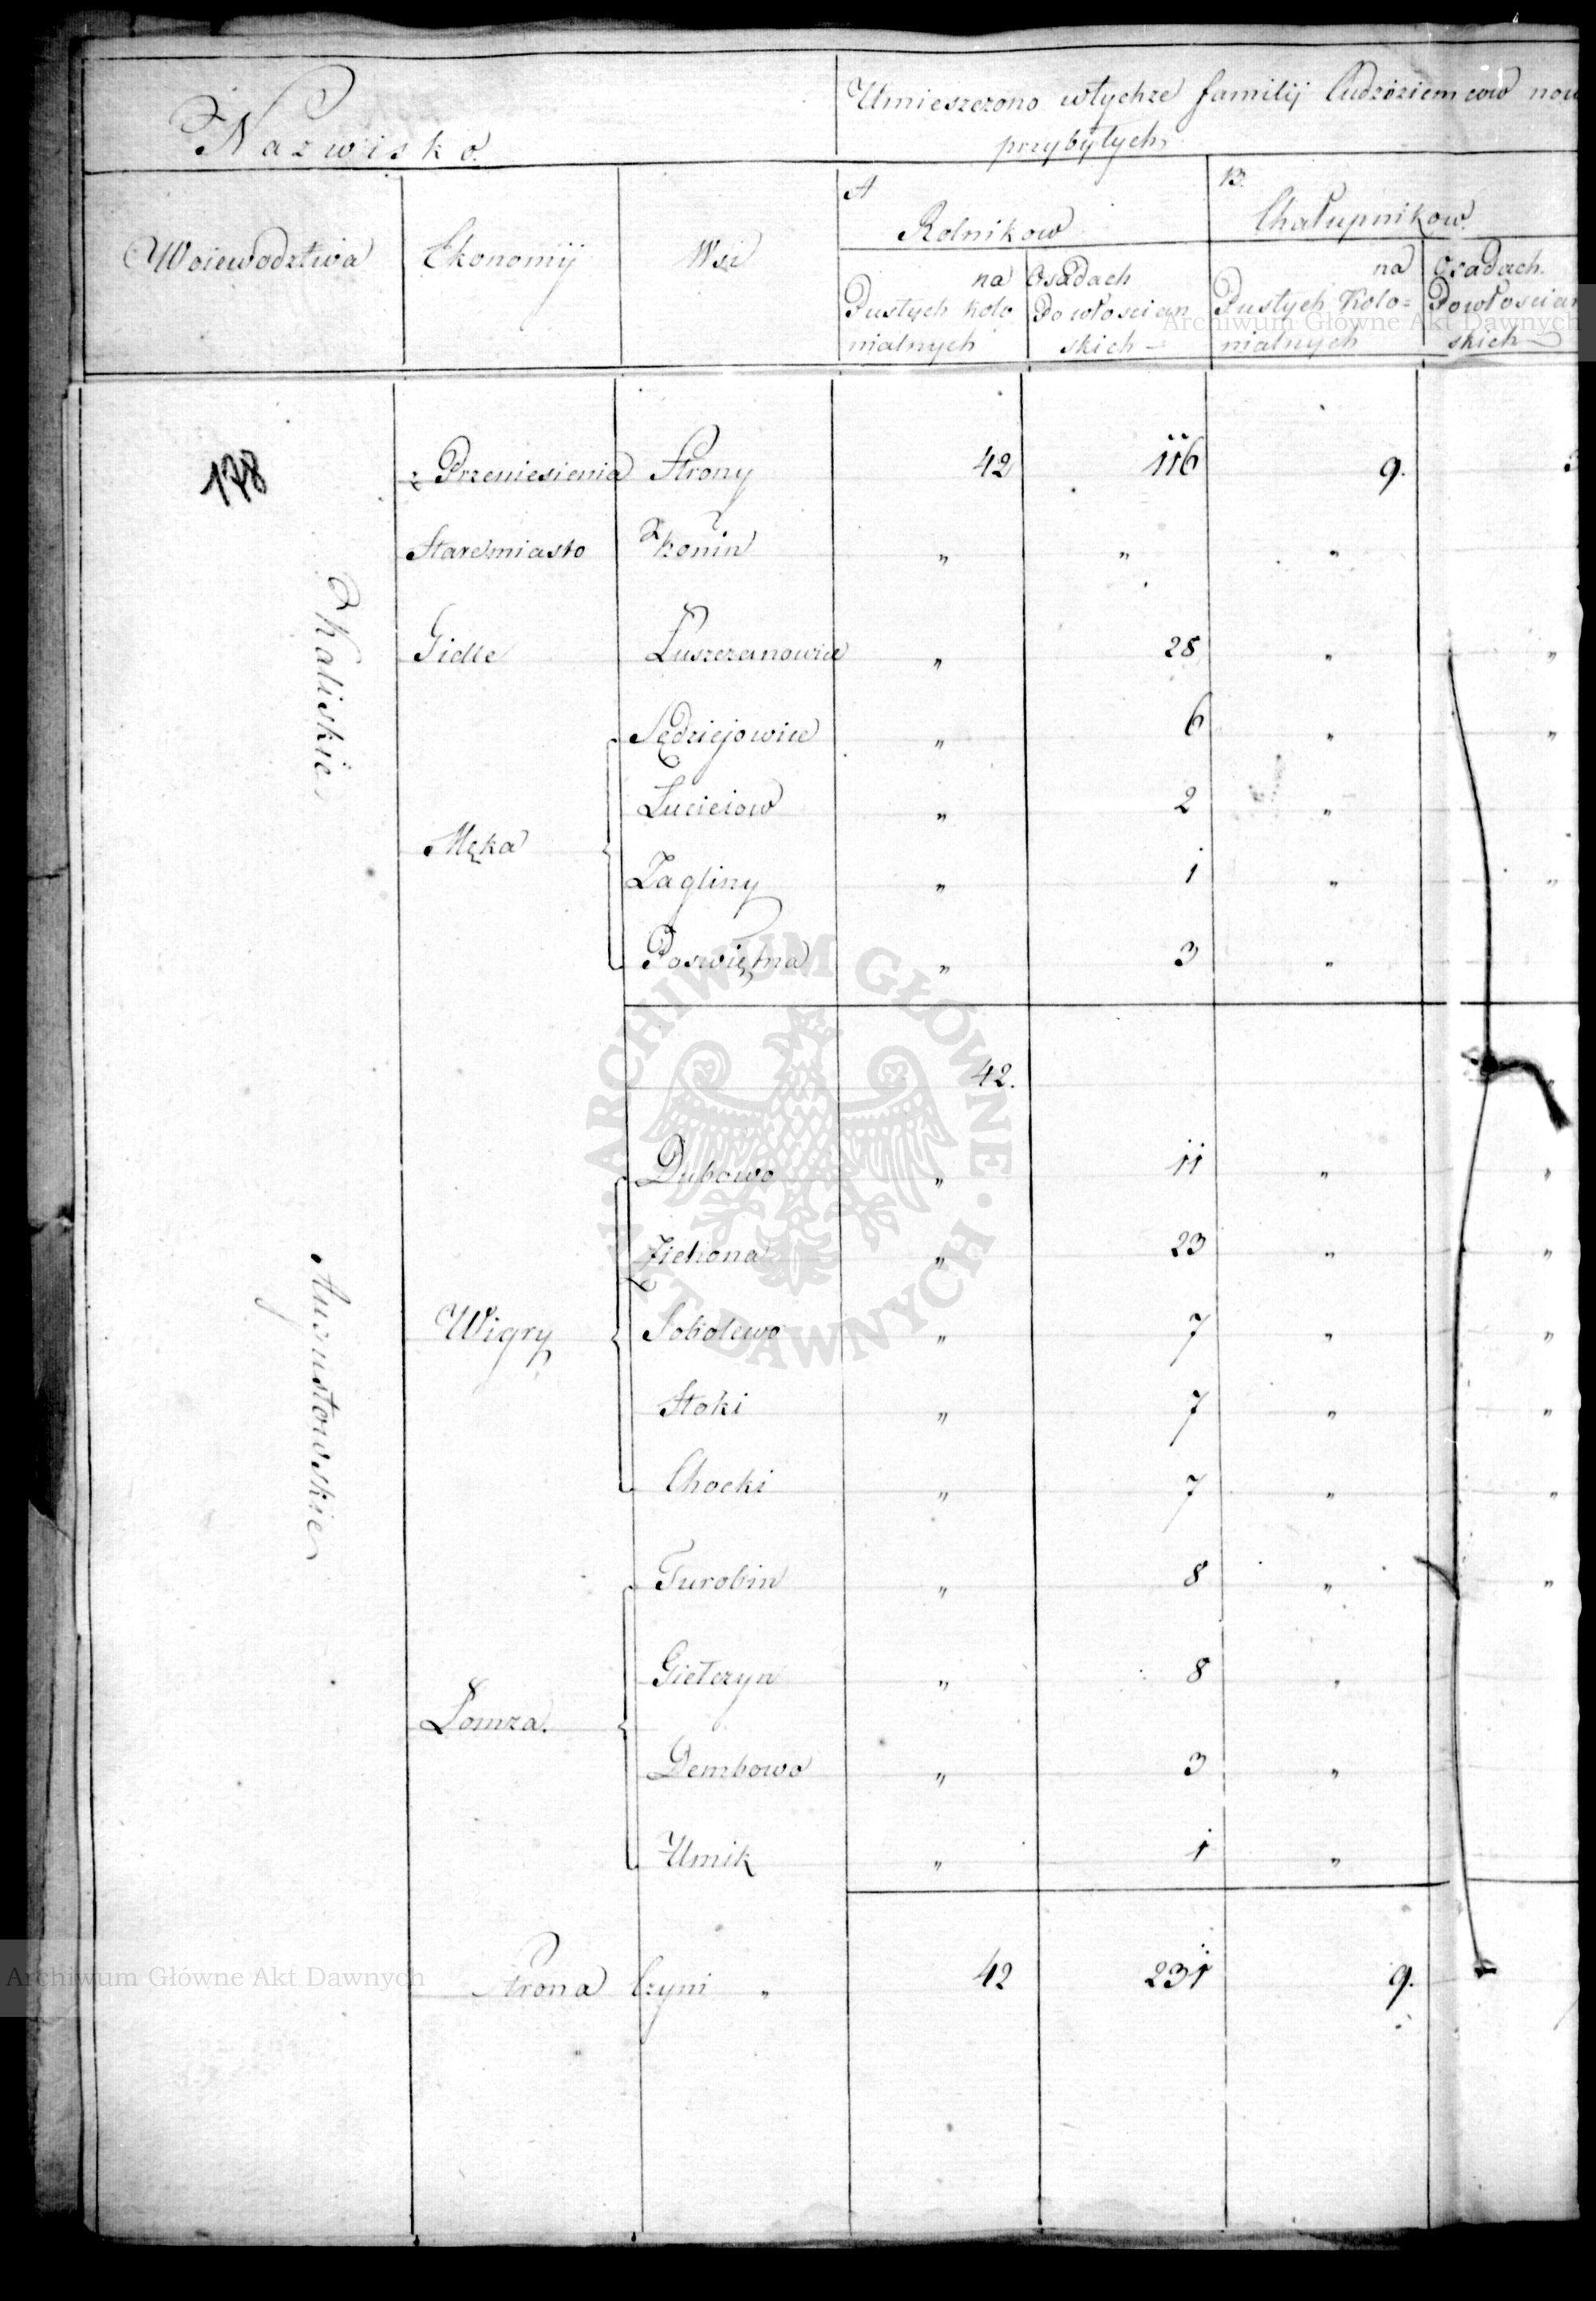 Nazwisko.
Umieszczono wtychże familij Cudzoziemcow now
przybyłych.
Woiewodztwa Ekonomij Wsi
A
Rolnikow
B.
Chałupnikow.
na Osadach
Pustych kolo Po włoscian
nialnych skich
na Osadach.
Pustych Kolo= Powłoscian
nialnych skich
Archiwum Główne Akt Dawnych
178
z Przeniesienia Strony 42 116 9.
Kaliskie
Staremiasto Konin " " "
Gidle Łuszczanowice " 28 " "
Męka
Sędziejowice " 6 " "
Luciciow " 2 "
Zagliny " 1 " "
Poswiętna " 3 "
42.
Augustowskie
Wigry
Dubowo " 11 " "
Zielona " 23 " "
Sobolewo " 7 " "
Stoki " 7 " "
Chocki " 7 " "
Łomza.
Turobin " 8 " "
Giełczyn " 8 "
Dembowo " 3 "
Umik " 1 "
Strona Czyni " 42 231 9.
ARCHIWUM GŁÓWNE AKT DAWNYCH
Archiwum Główne Akt Dawnych